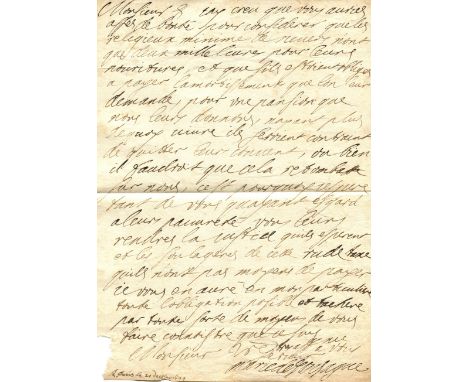 Monsieur Jay creu que vous auriez
assez de bonté pour considerer que les
religieux minime de nont
que deux mille liures pour leurs
nouritures, et que sils estoient obligez
a payer lamortissement que lon leur
demande, pour vne pansion que
nous leurs donnons nayant plus
de quoy viure ils seroient contraint
de quitter leur couuent, ou bien
il faudroit que cela retombat
sur nous, cest pourquoy jespere
tant de vous quayant esgard
a leur pauureté vous leurs
rendres la justice quils esperent
et les soulageres de cette rude taxe
quils nont pas moyens de payer
je vous en auré en mon particulier
toute lobligation posible et
par toute sorte de moyen de vous
faire connoistre que je suis
Monsieur